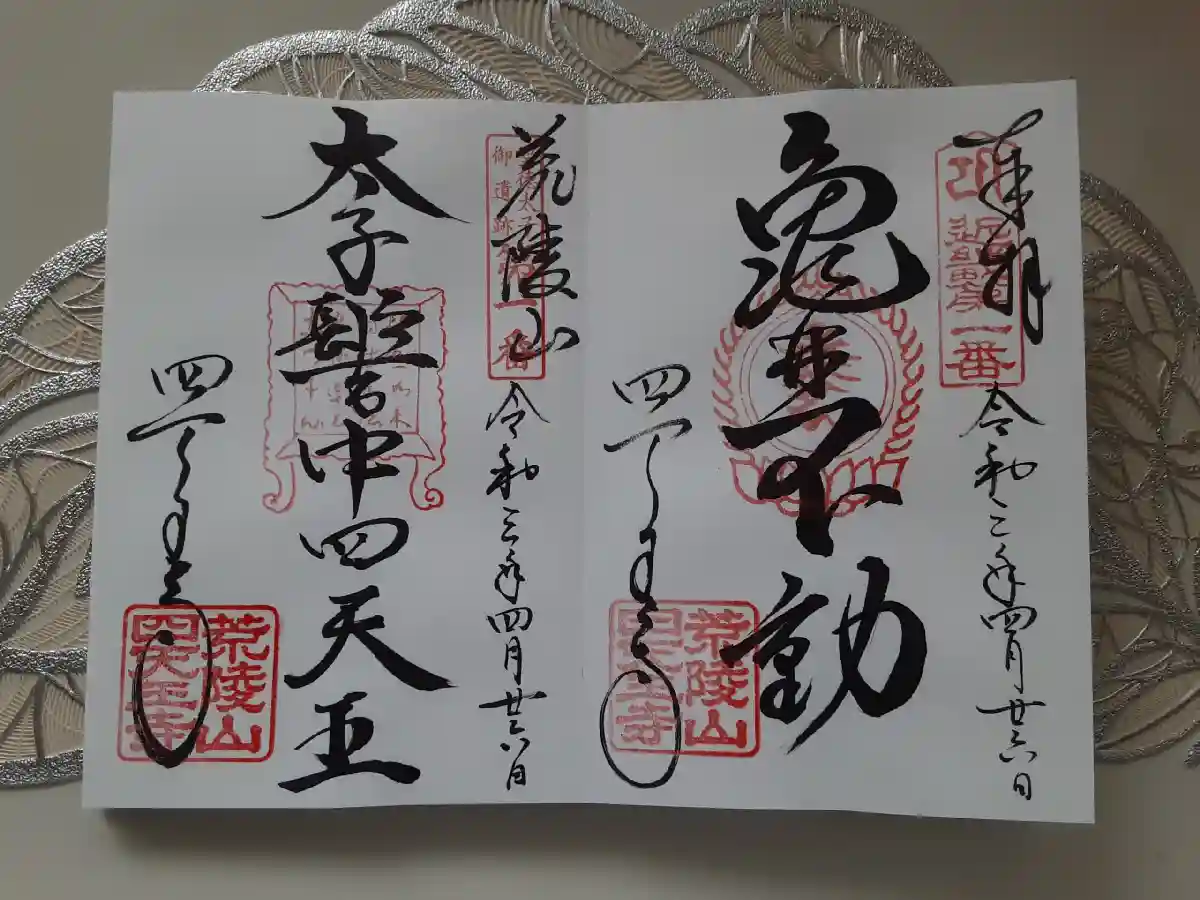 奉拝
一番
令和三年四月廿六日
亀井不動
四天王寺
荒陵山
四天王寺
荒陵山
御遺跡第一番
令和三年四月廿六日
太子髻中四天王
四天王寺
荒陵山
四天王寺